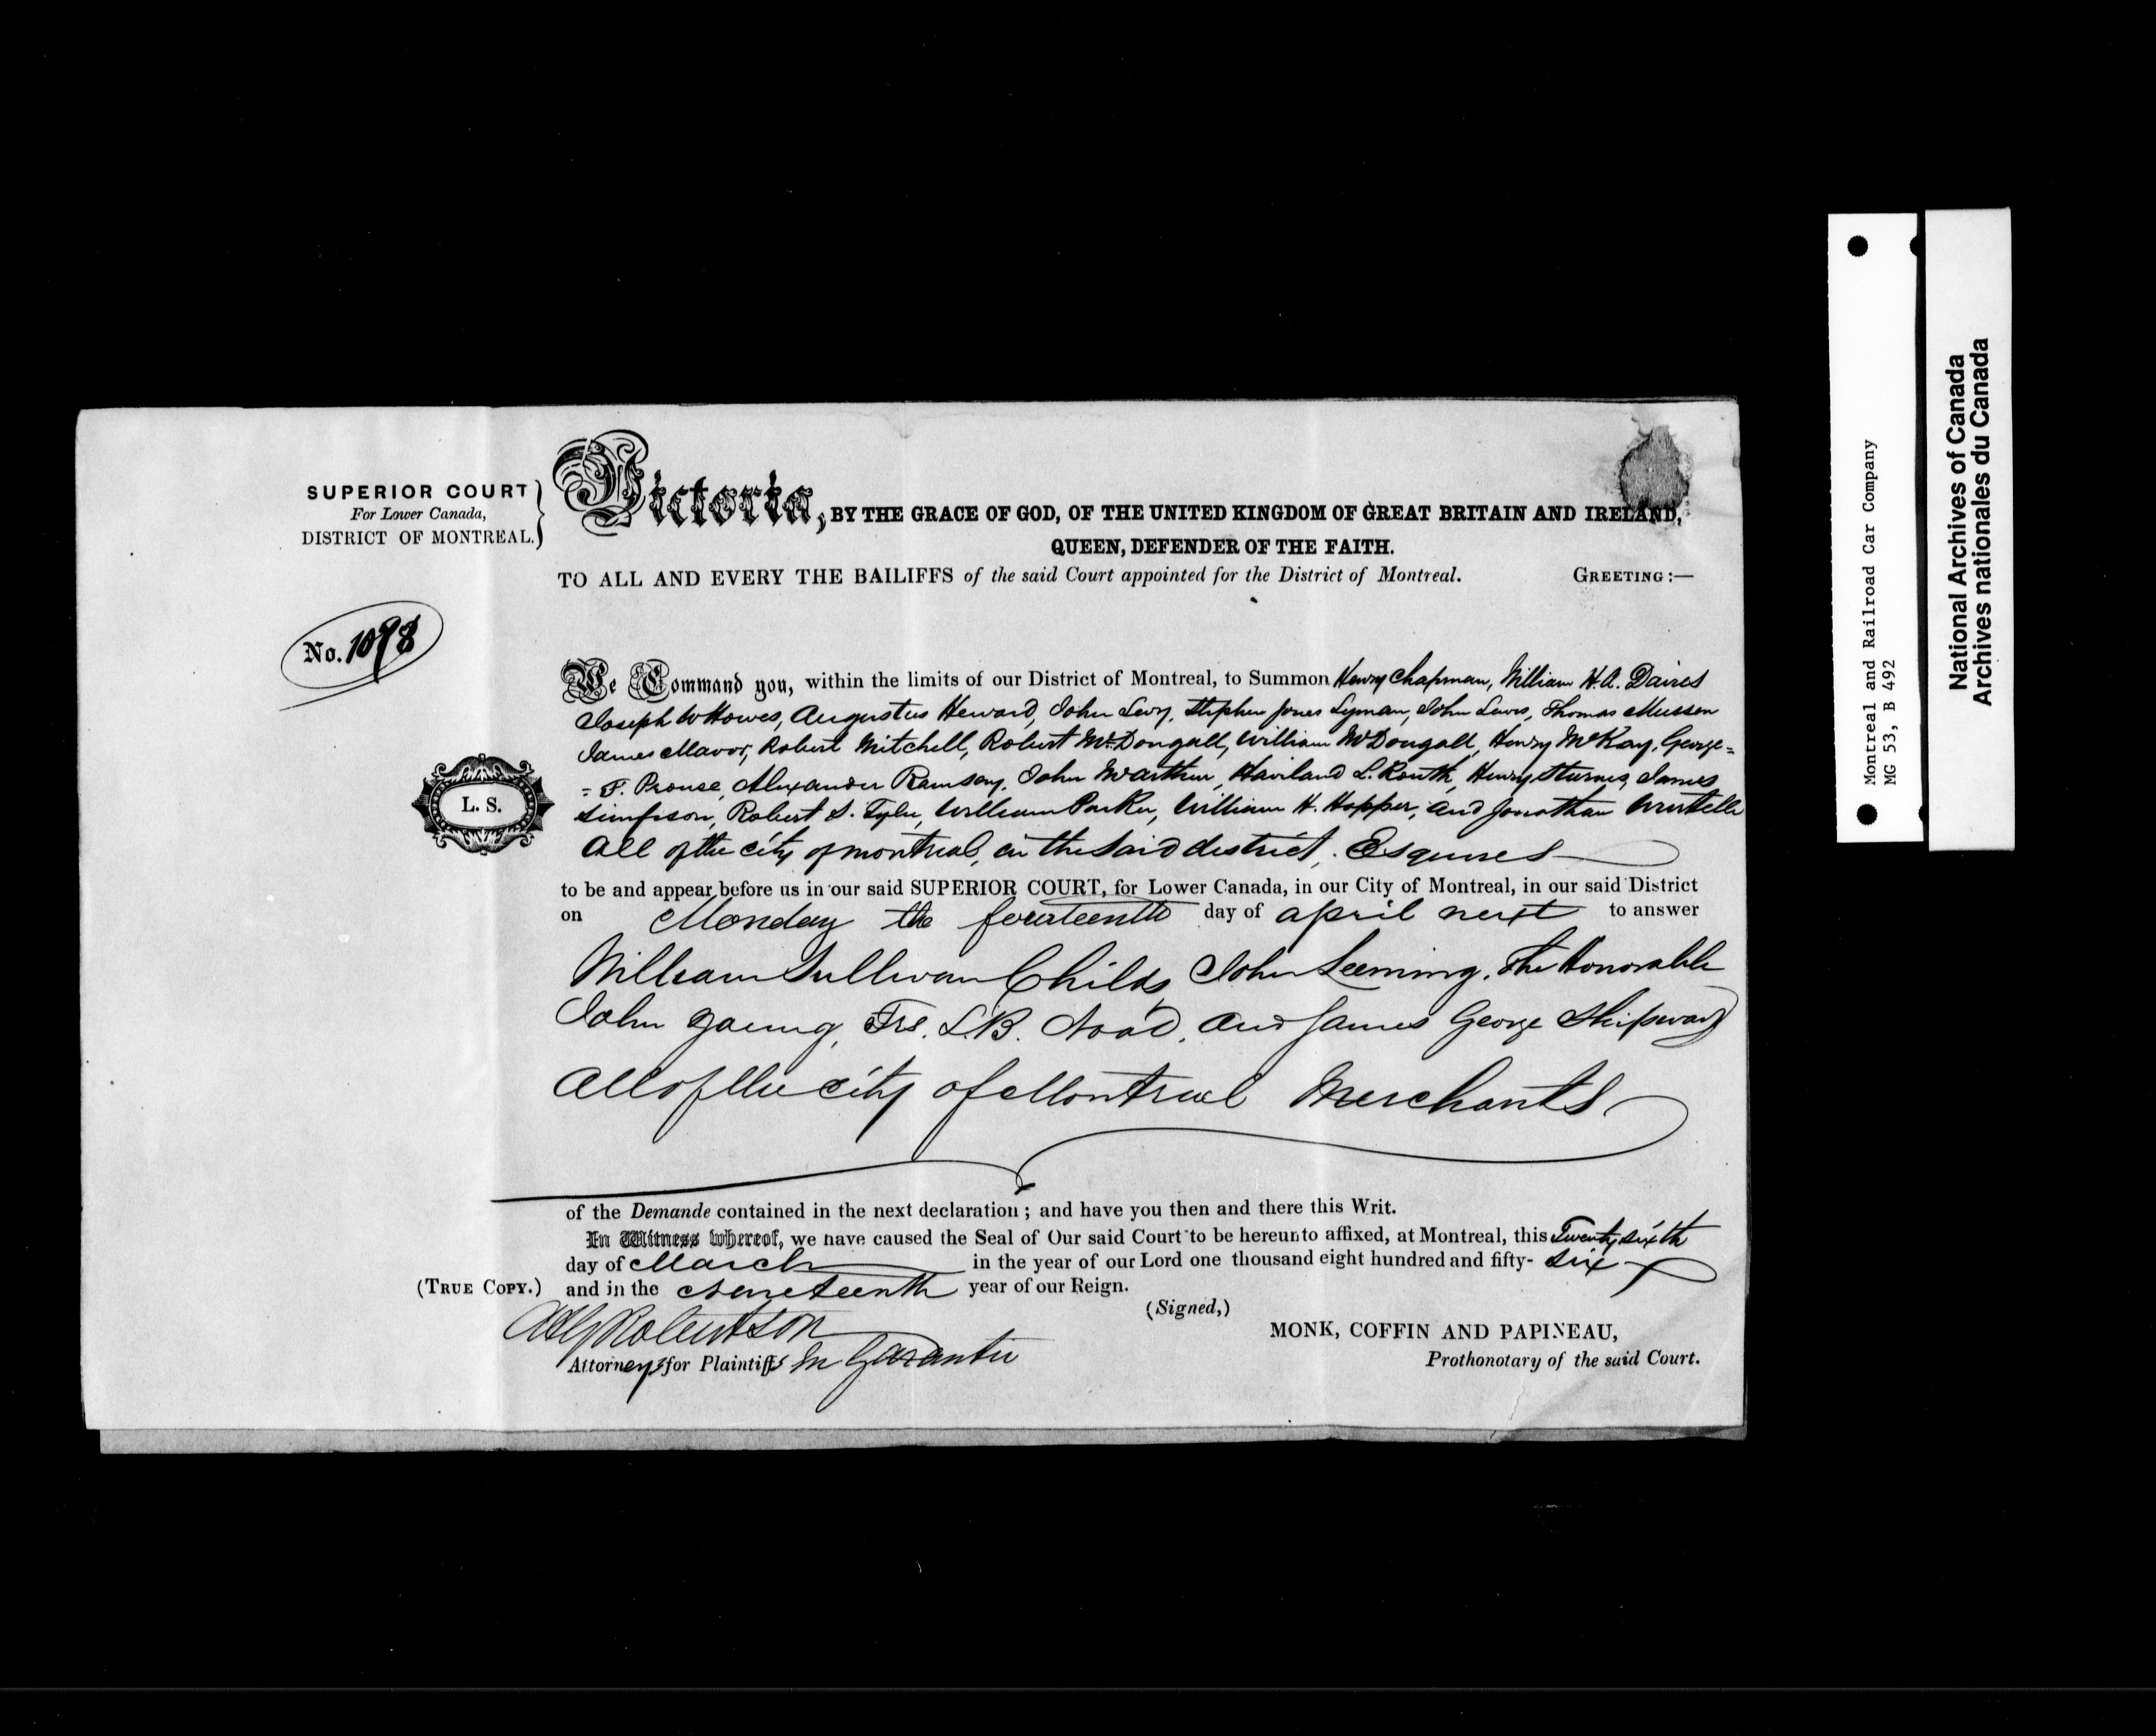 SUPERIOR COURT
For Lower Canada,
DISTRICT OF MONTREAL.
Victoria, BY THE GRACE OF GOD, OF THE UNITED KINGDOM OF GREAT BRITAIN AND IRELAND,
QUEEN, DEFENDER OF THE FAITH.
TO ALL AND EVERY THE BAILIFFS of the said Court appointed for the District of Montreal. GREETING:—
No. 1098
We Command you, within the limits of our District of Montreal, to Summon Henry Chapman, William H. A. Davies
Joseph W Howes, Augustus Heward, John Levy, Stephen Jones Lyman, John Lewis, Thomas Mussen
James Mavor, Robert Mitchell, Robert McDougall, William McDougall, Henry McKay, George=
= F. Prouse, Alexander Ramsay, John McArthur, Haviland L. Routh, Henry Starnes, James
Simpson, Robert S. Tyler, William Parker, William H. Hopper, and Jonathan Wurtelle
All of the city of Montreal, in the said district, Esquires
L. S.
to be and appear before us in our said SUPERIOR COURT, for Lower Canada, in our City of Montreal, in our said District
on Monday the fourteenth day of April next to answer
William Sullivan Childs, John Leeming, The Honorable
John Young, Frs. L.B. Noad, and James George Shipway
All of the city of Montreal Merchants
of the Demande contained in the next declaration; and have you then and there this Writ.
In Witness whereof, we have caused the Seal of Our said Court to be hereunto affixed, at Montreal, this Twenty sixth
day of March in the year of our Lord one thousand eight hundred and fifty- six
(TRUE COPY.) and in the nineteenth year of our Reign.
(Signed,)
Robertson
MONK, COFFIN AND PAPINEAU,
Attorneys for Plaintiffs in Garantie
Prothonotary of the said Court.
Montreal and Railroad Car Company
MG 53, B 492
National Archives of Canada
Archives nationales du Canada